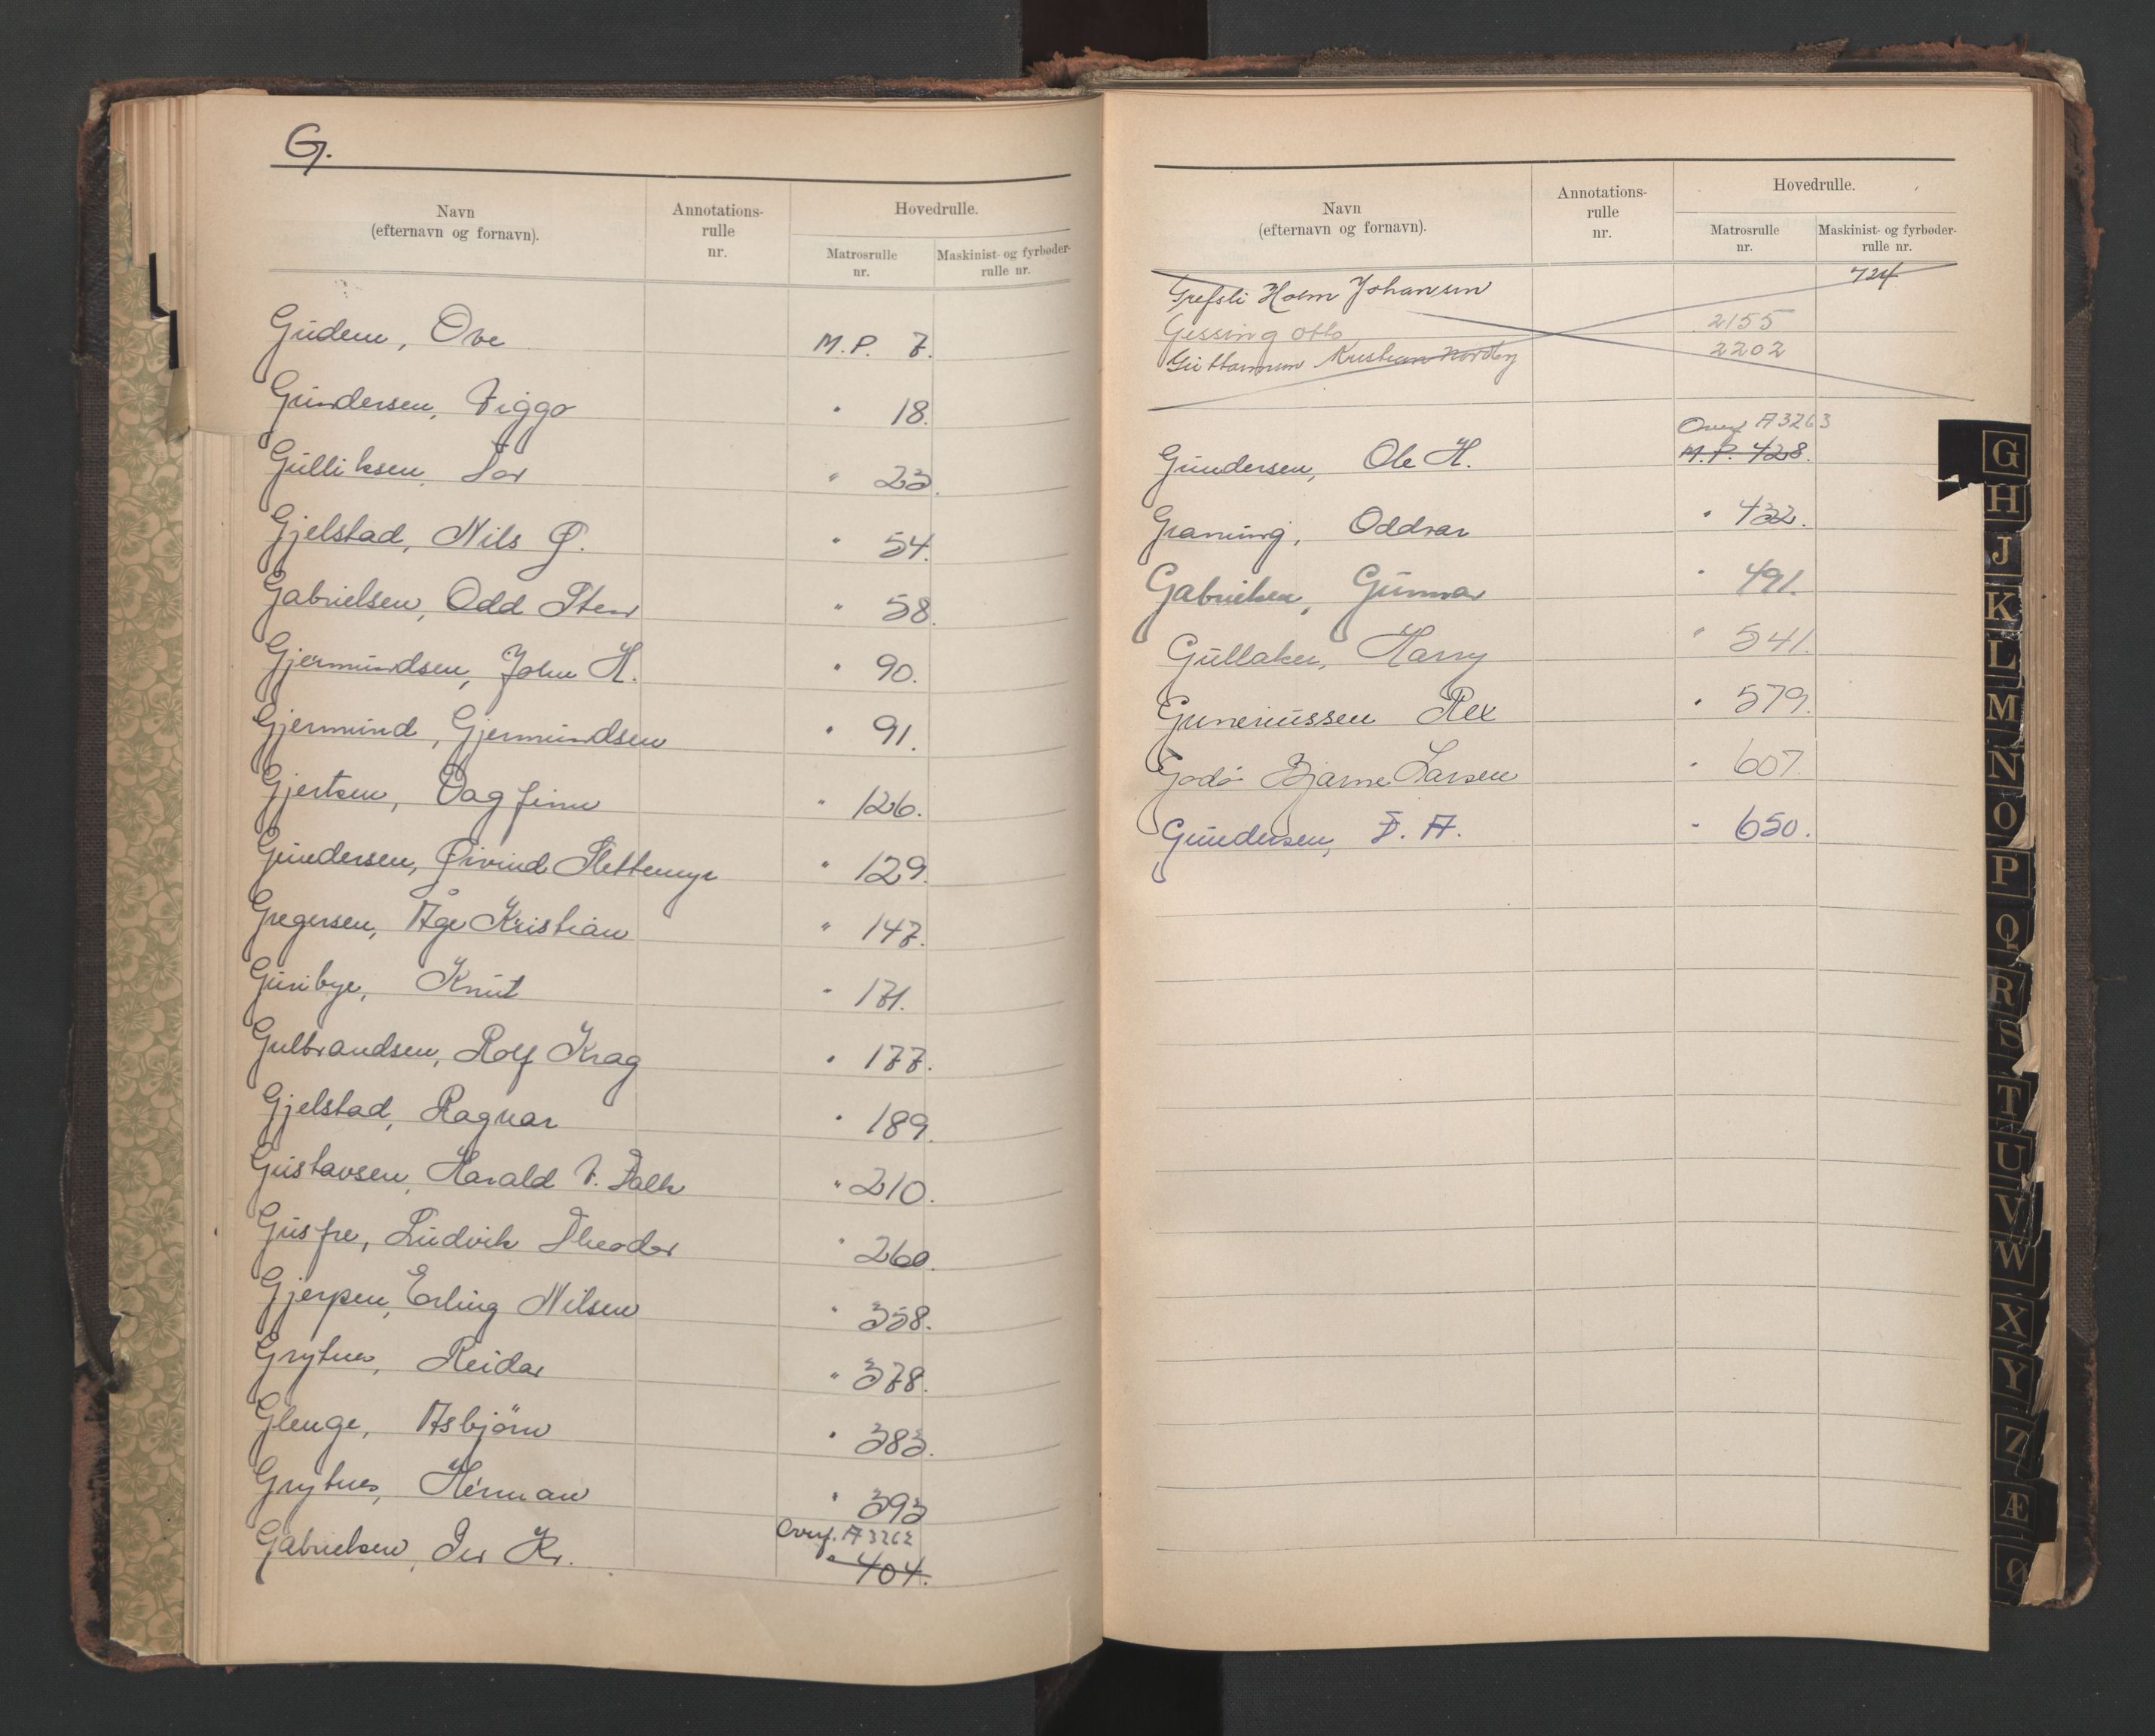 G.
Navn
(efternavn og fornavn).
Annotations-
rulle
nr.
Hovedrulle.
Matrosrulle
nr.
Maskinist- og fyrbøder-
rulle nr.
Gudem, Ove M.P. 7.
Gundersen, Viggo " 18.
Gulliksen, Tor " 23.
Gjelstad, Nils Ø. " 54.
Gabrielsen, Odd Sten " 58.
Gjermundsen, John H. " 90.
Gjermund, Gjermundsen " 91.
Gjertsen, Dagfinn " 126.
Gundersen, Øivind Slettemyr " 129.
Gregersen, Åge Kristian " 147.
Gunbye, Knut " 171.
Gulbrandsen, Rolf Krag " 177.
Gjelstad, Ragnar " 189.
Gustavsen, Harald V. Falk " 210.
Gusfre, Ludvik Theodor " 260.
Gjerpen, Erling Nilsen " 358.
Grytnes, Reidar " 378.
Glenge, Asbjörn " 383.
Grytnes, Herman " 393
Overf. A 3262
Gabrielsen, Per Kr. " 404.
Navn
(efternavn og fornavn).
Annotations-
rulle
nr.
Hovedrulle.
Matrosrulle
nr.
Maskinist- og fyrbøder-
rulle nr.
Grefsli Holm Johansen 724
Gessing Otto 2155
Guttormsen Kristian Nordby 2202
Overf A 3263
Gundersen, Ole H. M.P. 428.
Graning, Oddvar " 432.
Gabrielsen, Gunnar " 491.
Gullaker, Harry " 541.
Guneriussen Rex " 579.
Godø Bjarne Larsen " 607.
Gundersen, F. A. " 650.
G
H
J
K
L
M
N
O
P
Q
R
S
T
U
V
W
X
Y
Z
Æ
Ø